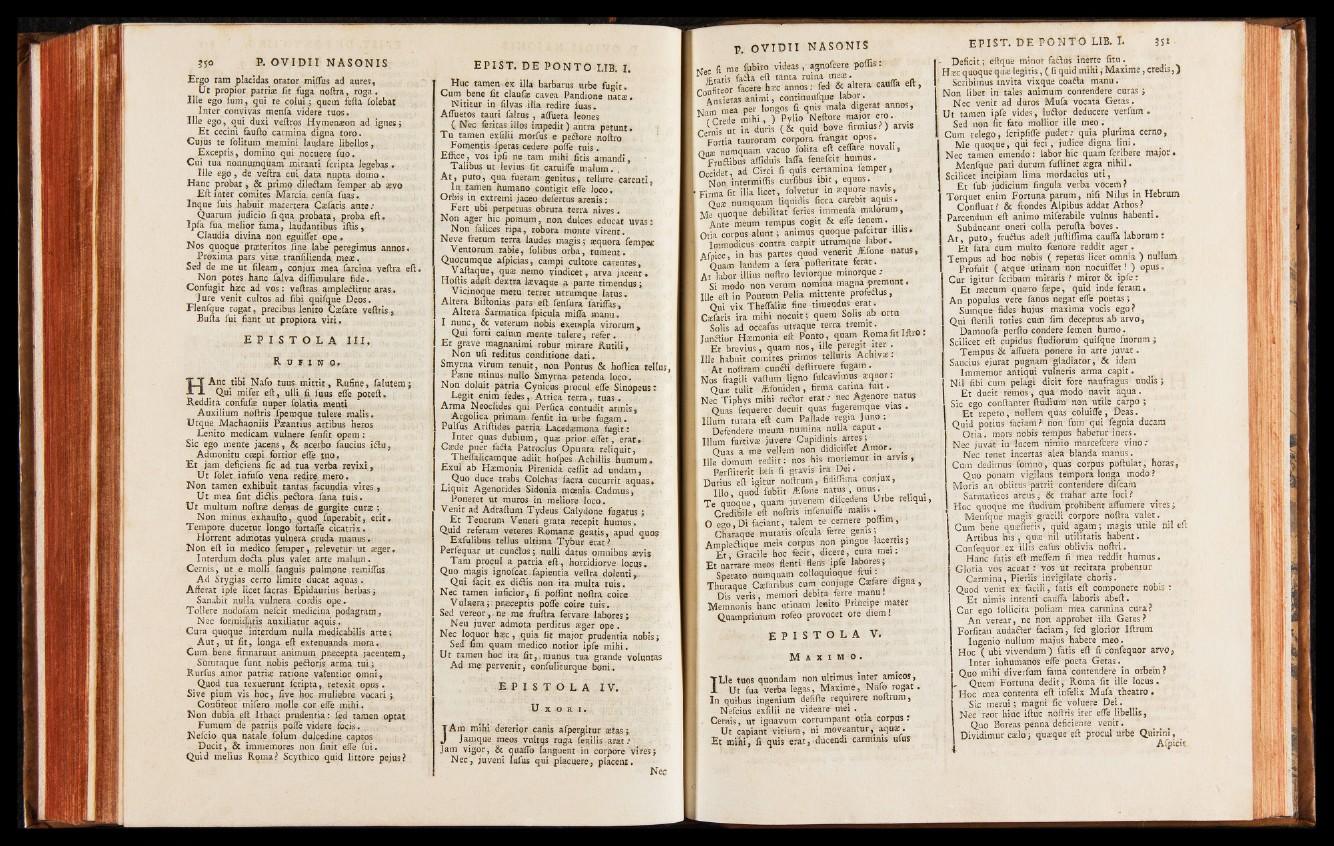 350 P. OVIDII NASONIS
Ergo tam placidas orator missus ad aures,
Ut propior patriæ sit fuga nostra, roga.
Ille ego sum, qui te colui; quem festa solebat
Inter convivas mensa videre tuos.
Ille ego, qui duxi vestros Hymenæon ad ignes;
Et cecini fausto carmina digna toro.
Cujus te solitum memini laudare libellos,
Exceptis, domino qui nocuere suo.
Cui tua nonnumquam miranti scripta legebas.
Ille ego, de vestra cui data nupta domo.
Hanc probat, & primo dilectam semper ab ævo
Est inter comites Marcia censa suas.
Inque suis habuit matertera Cæsaris ante:
Quarum judicio si qua probata, proba est.
Ipsa sua melior fama, laudantibus istis,
Claudia divina non eguisset ope.
Nos quoque præteritos sine labe peregimus annos.
Proxima pars vitæ transilienda meæ.
Sed de me ut sileam, conjux mea sarcina vestra est.
Non potes hanc salva dissimulare fide.
Confugit hæc ad vos: vestras amplectitur aras.
Jure venit cultos ad sibi quisque Deos.
Flensque rogat, precibus lenito Cæsare vestris,
Busta sui fiant ut propiora viri.
EPISTOLA III.
RUFINO.
HAnc tibi Naso tuus mittit, Rufine, salutem;
Qui miser est, ulli si suus esse potest.
Reddita confusæ nuper solatia menti
Auxilium nostris spemque tulere malis.
Utque Machaoniis Pæantius artibus heros
Lenito medicam vulnere sensit opem:
Sic ego mente jacens, & acerbo saucius ictu,
Admonitu cœpi fortior esse tuo.
Et jam deficiens sic ad tua verba revixi,
Ut solet infuso vena redire mero.
Non tamen exhibuit tantas facundia vires,
Ut mea sint dictis pectora sana tuis.
Ut multum nostræ demas de gurgite curæ;
Non minus exhausto, quod superabit, erit.
Tempore ducetur longo fortasse cicatrix.
Horrent admotas vulnera cruda manus.
Non est in medico semper, relevetur ut æger.
Interdum docta plus valet arte malum.
Cernis, ut e molli sanguis pulmone remissus
Ad Stygias certo limite ducat aquas.
Afferat ipse licet sacras Epidaurius herbas;
Sanabit nulla vulnera cordis ope.
Tollere nodosam nescit medicina podagram,
Nec formidatis auxiliatur aquis.
Cura quoque interdum nulla medicabilis arte;
Aut, ut sit, longa est extenuanda mora.
Cum bene firmarunt animum præcepta jacentem,
Sumtaque sunt nobis pectoris arma tui;
Rursus amor patriæ ratione valentior omni,
Quod tua texuerunt scripta, retexit opus.
Sive pium vis hoc, sive hoc muliebre vocari;
Confiteor misero molle cor esse mihi.
Non dubia est Ithaci prudentia: sed tamen optat
Fumum de patriis posse videre focis.
Nescio qua natale solum dulcedine captos
Ducit, & immemores non sinit esse sui.
Quid melius Roma? Scythico quid littore pejus?
EPIST. DE PONTO LIB. I.
Huc tamen ex illa barbarus urbe fugit.
Cum bene sit clausæ cavea Pandione natæ.
Nititur in silvas illa redire suas.
Assuetos tauri saltus, assueta leones
(Nec feritas illos impedit) antra petunt.
Tu tamen exsilii morsus e pectore nostro
Fomentis speras cedere posse tuis.
Effice, vos ipsi ne tam mihi sitis amandi,
Talibus ut levius sit caruisse malum.
At, puto, qua fueram genitus, tellure carenti,
In tamen humano contigit esse loco.
Orbis in extremi jaceo desertus arenis:
Fert ubi perpetuas obruta terra nives.
Non ager hic pomum, non dulces educat uvas:
Non salices ripa, robora monte virent.
Neve fretum terra laudes magis; æquora semper
Ventorum rabie, solibus orba, tument.
Quocumque aspicias, campi cultore carentes,
Vastaque, quæ nemo vindicet, arva jacent.
Hostis adest dextra lævaque a parte timendus;
Vicinoque metu terret utrumque latus.
Altera Bistonias pars est sensura sarissas,
Altera Sarmatica spicula missa manu.
I nunc, & veterum nobis exempla virorum,
Qui forti casum mente tulere, refer.
Et grave magnanimi robur mirare Rutili,
Non usi reditus conditione dati.
Smyrna virum tenuit, non Pontus & hostica tellus,
Pæne minus nullo Smyrna petenda loco.
Non doluit patria Cynicus procul esse Sinopeus:
Legit enim sedes, Attica terra, tuas.
Arma Neoclides qui Persica contudit armis,
Argolica primam sensit in urbe fugam.
Pulsus Aristides patria Lacedæmona fugit:
Inter quas dubium, quæ prior esset, erat.
Cæde puer facta Patroclus Opunta reliquit,
Thessalicamque adiit hospes Achillis humum.
Exul ab Hæmonia Pirenida cessit ad undam,
Quo duce trabs Colchas sacra cucurrit aquas.
Liquit Agenorides Sidonia mœnia Cadmus,
Poneret ut muros in meliore loco.
Venit ad Adrastum Tydeus Calydone fugatus;
Et Teucrum Veneri grata recepit humus.
Quid referam veteres Romanæ gentis, apud quos
Exsulibus tellus ultima Tybur erat?
Persequar ut cunctos; nulli datus omnibus ævis
Tam procul a patria est, horridiorve locus.
Quo magis ignoscat sapientia vestra dolenti,
Qui facit ex dictis non ita multa tuis.
Nec tamen inficior, si possint nostra coire
Vulnera; præceptis posse coire tuis.
Sed vereor, ne me frustra servare labores;
Neu juver admota perditus æger ope.
Nec loquor hæc, quia sit major prudentia nobis;
Sed sim quam medico notior ipse mihi.
Ut tamen hoc ita sit, munus tua grande voluntas
Ad me pervenit, consuliturque boni.
EPISTOLA IV.
UXORI.
JAm mihi deterior canis aspergitur ætas;
Jamque meos vultus ruga senilis arat:
Jam vigor, & quasso languent in corpore vires;
Nec, juveni lusus qui placuere, placent.
Nec
P. OVIDII NASONIS
Nec si me subito videas, agnoscere possis:
Ætatis facta est tanta ruina meæ.
Confiteor facere hæc annos: sed & altera caussa est,
Anxietas animi, continuusque labor.
Nam mea per longos si quis mala digerat annos,
(Crede mihi,) Pylio Nestore major ero.
Cernis ut in duris (& quid bove firmius?) arvis
Fortia taurorum corpora frangat opus.
Quæ numquam vacuo solita est cessare novali,
Fructibus assiduis lassa senescit humus.
Occidet, ad Circi si quis certamina semper,
Non intermissis cursibus ibit, equus.
Firma sit illa licet, solvetur in æquore navis,
Quæ numquam liquidis sicca carebit aquis.
Me quoque debilitat series immensa malorum,
Ante meum tempus cogit & esse senem.
Otia corpus alunt; animus quoque pascitur illis.
Immodicus contra carpit utrumque labor.
Aspice, in has partes quod venerit Æsone natus,
Quam laudem a sera posteritate ferat.
At labor illius nostro leviorque minorque:
Si modo non verum nomina magna premunt.
Ille est in Pontum Pelia mittente profectus,
Qui vix Thessaliæ fine timendus erat.
Cæsaris ira mihi nocuit; quem Solis ab ortu
Solis ad occasus utraque terra tremit.
Junctior Hæmonia est Ponto, quam Roma sit Istro:
Et brevius, quam nos, ille peregit iter.
Ille habuit comites primos telluris Achivæ:
At nostram cuncti destituere fugam.
Nos fragili vastum ligno sulcavimus æquor:
Quæ tulit Æsoniden, firma carina fuit.
Nec Tiphys mihi rector erat: nec Agenore natus
Quas sequerer docuit quas fugeremque vias.
Illum tutata est cum Pallade regia Juno:
Defendere meum numina nulla caput.
Illum furtivæ juvere Cupidinis artes;
Quas a me vellem non didicisset Amor.
Ille domum rediit: nos his moriemur in arvis,
Perstiterit læsi si gravis ira Dei.
Durius est igitur nostrum, fidissima conjux,
Illo, quod subiit Æsone natus, onus.
Te quoque, quam juvenem discedens Urbe reliqui,
Credibile est nostris insenuisse malis.
O ego, Di faciant, talem te cernere possim,
Charaque mutatis oscula ferre genis;
Amplectique meis corpus non pingue lacertis;
Et, Gracile hoc fecit, dicere, cura mei:
Et narrare meos flenti flens ipse labores;
Sperato numquam colloquioque frui:
Thuraque Cæsaribus cum conjuge Cæsare digna,
Dis veris, memori debita ferre manu!
Memnonis hanc utinam lenito Principe mater
Quamprimum roseo provocet ore diem!
EPISTOLA V.
MAXIMO.
ILle tuos quondam non ultimus inter amicos,
Ut sua verba legas, Maxime, Naso rogat.
In quibus ingenium desiste requirere nostrum,
Nescius exsilii ne videare mei.
Cernis, ut ignavum corrumpant otia corpus:
Ut capiant vitium, ni moveantur, aquæ.
Et mihi, si quis erat, ducendi carminis usus
EPIST. DE PONTO LIB. I. 351
Deficit; estque minor factus inerte situ.
Hæc quoque quæ legitis, (si quid mihi, Maxime, credis,)
Scribimus invita vixque coacta manu.
Non libet in tales animum contendere curas;
Nec venit ad duros Musa vocata Getas.
Ut tamen ipse vides, luctor deducere versum.
Sed non fit fato mollior ille meo.
Cum relego, scripsisse pudet: quia plurima cerno,
Me quoque, qui feci, judice digna lini.
Nec tamen emendo: labor hic quam scribere major.
Mensque pati durum sustinet ægra nihil.
Scilicet incipiam lima mordacius uti,
Et sub judicium singula verba vocem?
Torquet enim Fortuna parum, nisi Nilus in Hebrum
Confluat? & frondes Alpibus addat Athos?
Parcendum est animo miserabile vulnus habenti.
Subducant oneri colla perusta boves.
At, puto, fructus adest justissima caussa laborum:
Et sata cum multo fœnore reddit ager.
Tempus ad hoc nobis (repetas licet omnia) nullum
Profuit (atque utinam non nocuisset!) opus.
Cur igitur scribam miraris? miror & ipse:
Et mecum quæro sæpe, quid inde feram.
An populus vere sanos negat esse poetas;
Sumque fides hujus maxima vocis ego?
Qui sterili toties cum sim deceptus ab arvo,
Damnosa persto condere semen humo.
Scilicet est cupidus studiorum quisque suorum;
Tempus & assueta ponere in arte juvat.
Saucius ejurat pugnam gladiator, & idem
Immemor antiqui vulneris arma capit.
Nil sibi cum pelagi dicit fore naufragus undis;
Et ducit remos, qua modo navit aqua.
Sic ego constanter studium non utile carpo;
Et repeto, nollem quas coluisse, Deas.
Quid potius faciam? non sum qui segnia ducam
Otia. mors nobis tempus habetur iners.
Nec juvat in lucem nimio marcescere vino:
Nec tenet incertas alea blanda manus.
Cum dedimus somno, quas corpus postulat, horas,
Quo ponam vigilans tempora longa modo?
Moris an oblitus patrii contendere discam
Sarmaticos arcus, & trahar arte loci?
Hoc quoque me studium prohibent assumere vires;
Mensque magis gracili corpore nostra valet.
Cum bene quæsieris, quid agam; magis utile nil est
Artibus his, quæ nil utilitatis habent.
Consequor ex illis casus oblivia nostri.
Hanc satis est messem si mea reddit humus.
Gloria vos acuat: vos ut recitata probentur
Carmina, Pieriis invigilate choris.
Quod venit ex facili, satis est componere nobis:
Et nimis intenti caussa laboris abest.
Cur ego sollicita poliam mea carmina cura?
An verear, ne non approbet illa Getes?
Forsitan audacter faciam, sed glorior Istrum
Ingenio nullum majus habere meo.
Hoc (ubi vivendum) satis est si consequor arvo,
Inter inhumanos esse poeta Getas.
Quo mihi diversum fama contendere in orbem?
Quem Fortuna dedit, Roma sit ille locus.
Hoc mea contenta est infelix Musa theatro.
Sic merui; magni sic voluere Dei.
Nec reor hinc istuc nostris iter esse libellis,
Quo Boreas penna deficiente venit.
Dividimur cælo; quæque est procul urbe Quirini,
Aspicit